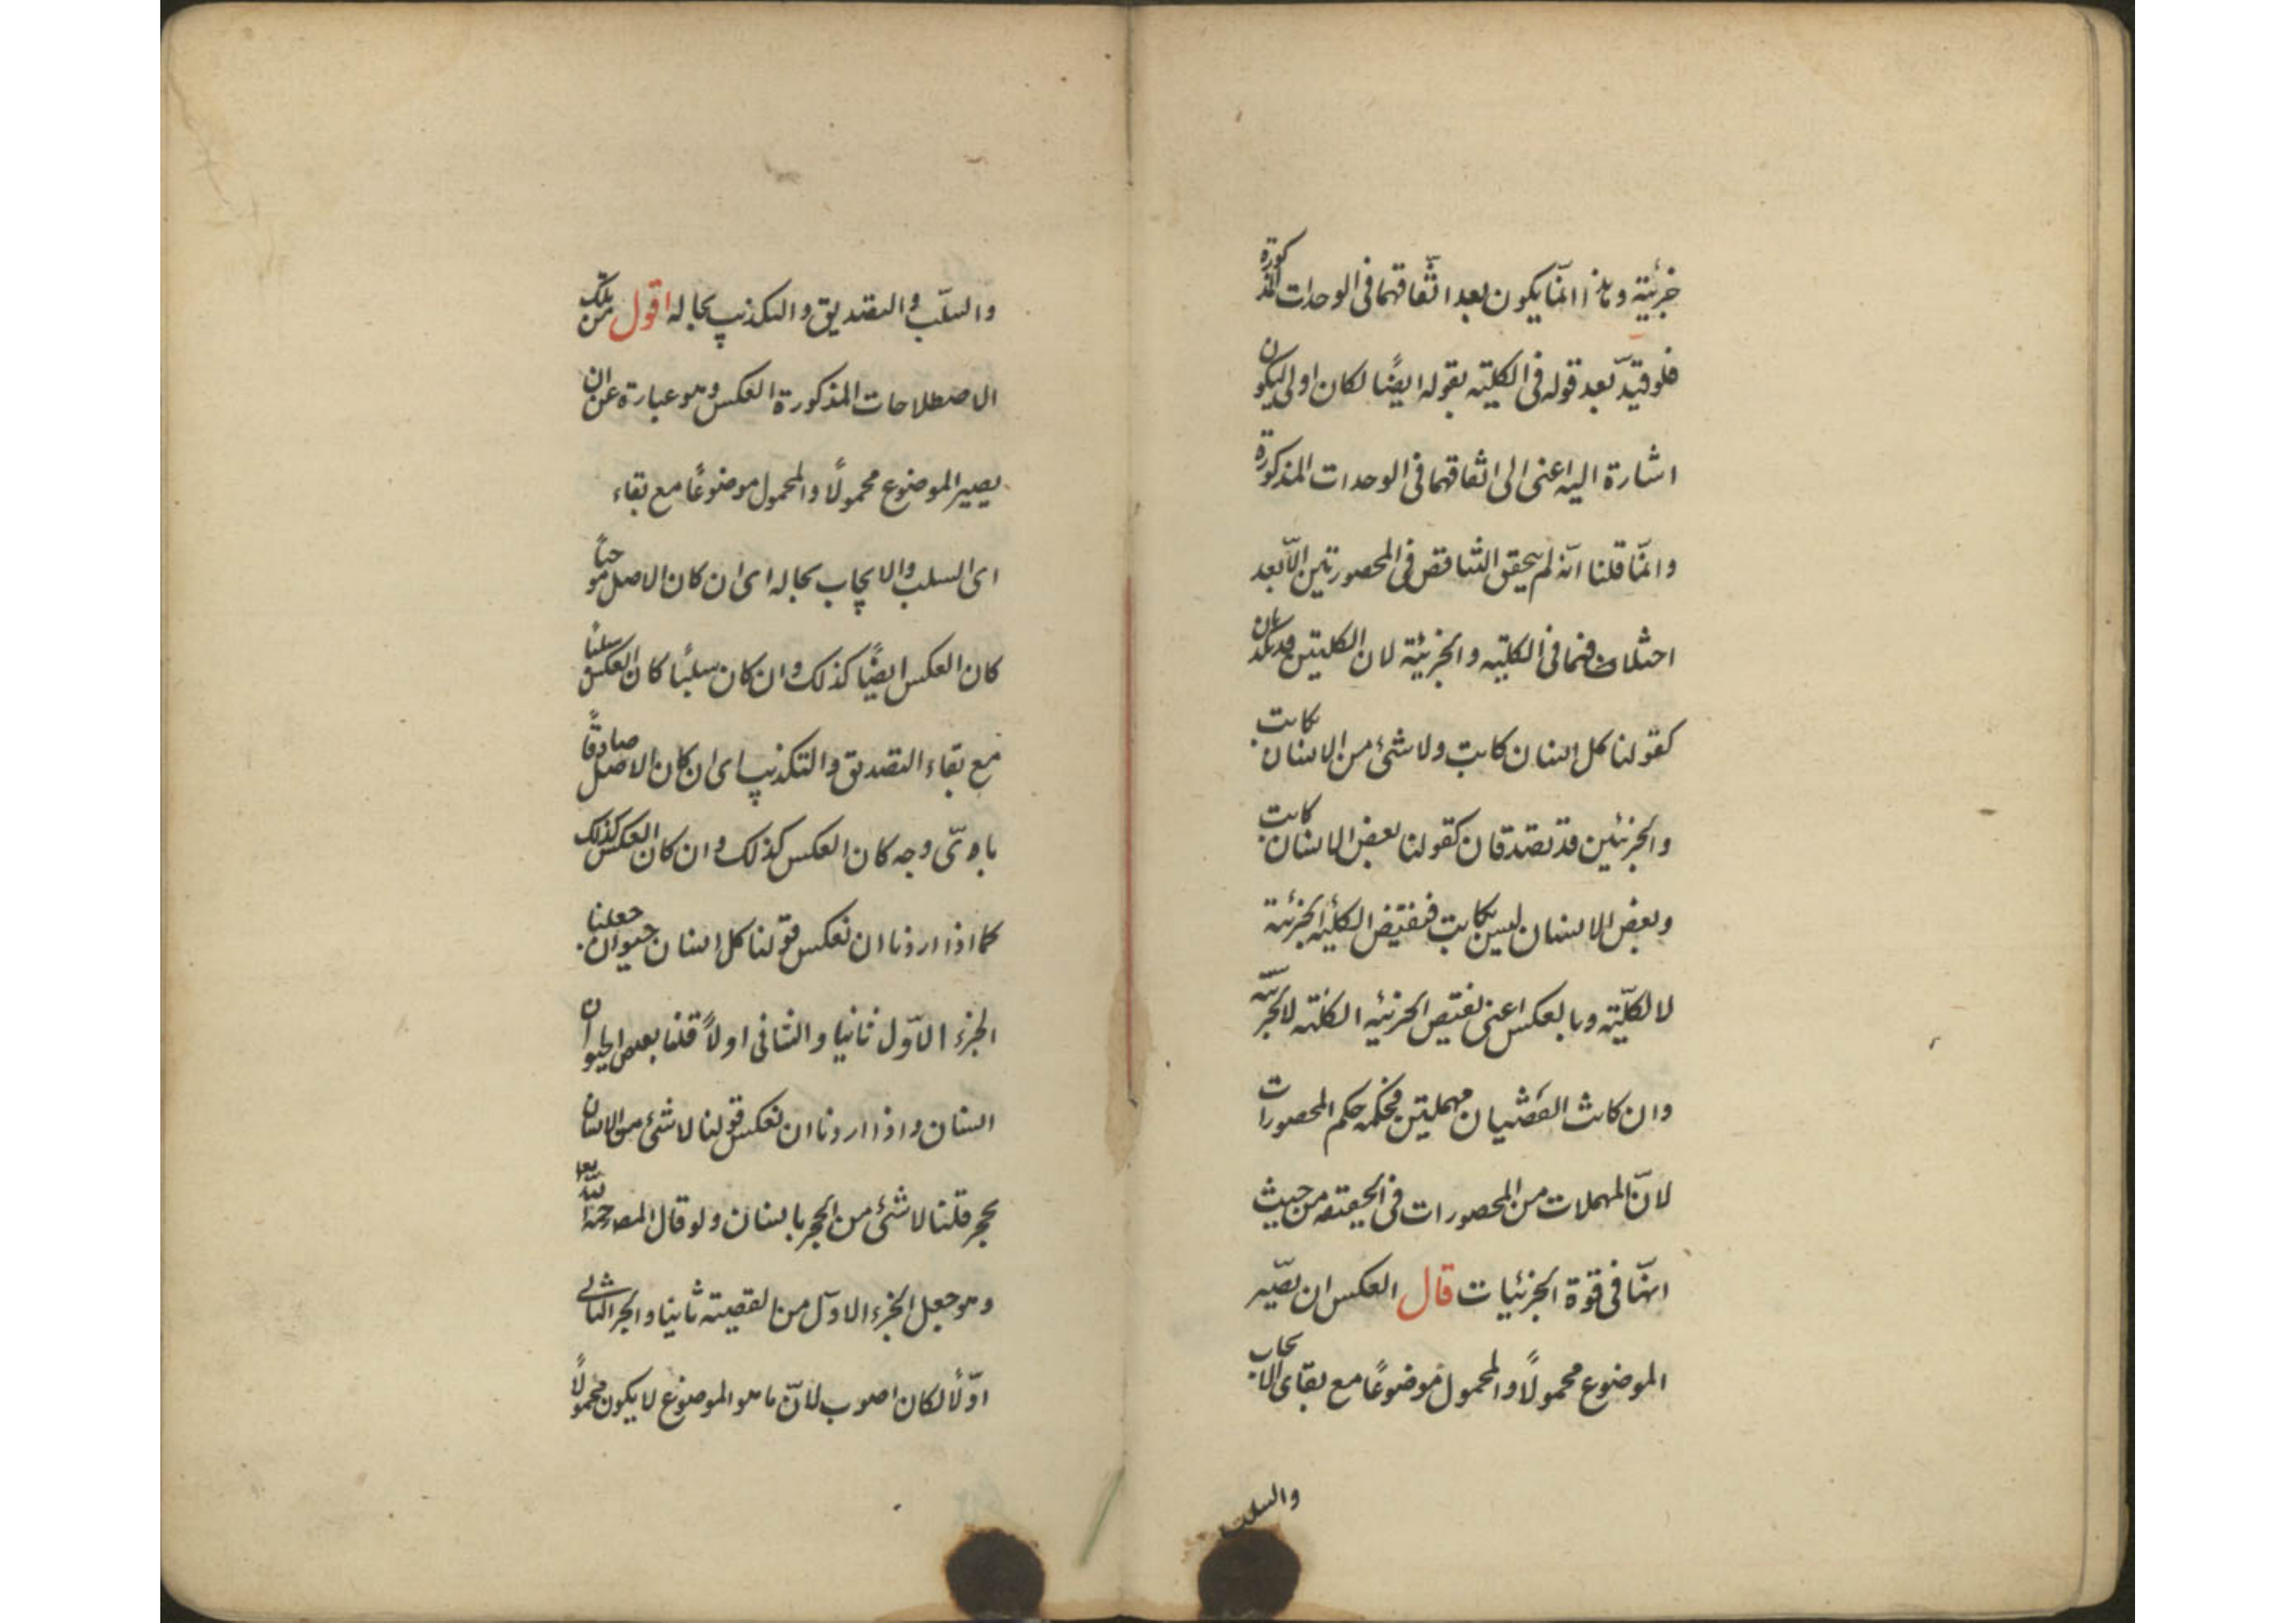 جزئية وهذا انمّا يكون بعد اتّفاقهما فى الوحدات المذكورة
فلو قيّد بعد قوله فى الكلية بقوله ايضًا لكان اولى ليكون
اشارة اليه اعنى الى اتفاقهما فى الوحدات المذكورة
وانمّا قلنا انّه لم يتحقق التناقض فى المحصورتين الاّ بعد
اختلافهما فى الكلية والجزئية لان الكليتين قد تكذبان
كقولنا كل انسان كاتب ولا شئ من الانسان بكاتب
والجزئيتين قد تصدقان كقولنا بعض الانسان كاتب
وبعض الانسان ليس بكاتب فنقيض الكلية الجزئية
لا الكلّية وبالعكس اعنى نقيض الجزئية الكلية لا الجزئية
وان كانت القضيتان مهملتين فحكمه حكم المحصورات
لانّ المهملات من المحصورات فى الحقيقة من حيث
انهّا فى قوّة الجزئيات قال العكس ان يصّير
الموضوع محمولاً والمحمول موضوعًا مع بقاى الايجاب
والسلب
والسلب والتصديق والتكذيب بحاله اقول من تلك
الاصطلاحات المذكورة العكس وهو عبارة عن ان
يصير الموضوع محمولاً والمحمول موضوعًا مع بقاء
اى السلب والايجاب بحاله اى ان كان الاصل موجبًا
كان العكس ايضًا كذلك وان كان سلبًا كان العكس سلبًا
مع بقاء التصديق والتكذيب اى ان كان الاصل صادقًا
باىّ وجه كان العكس كذلك وان كان العكس كذلك
كما اذا اردنا ان نعكس قولنا كل انسان حيوان جعلنا
الجزء الاوّل ثانيا والثانى اولاً قلنا بعض الحيوان
انسان واذا اردنا ان نعكس قولنا لا شئ من الانسان
بحجر قلنا لا شئ من الحجر بانسان ولو قال المص رحمه الله تعا
وهو جعل الجزء الاوّل من القضية ثانيا والجزء الثانى
اوّلاً لكان اصوب لانّ ما هو الموضوع لا يكون محمولاً